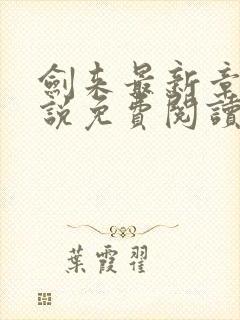 劍來最新章
說免費閱讀
葉霞翟